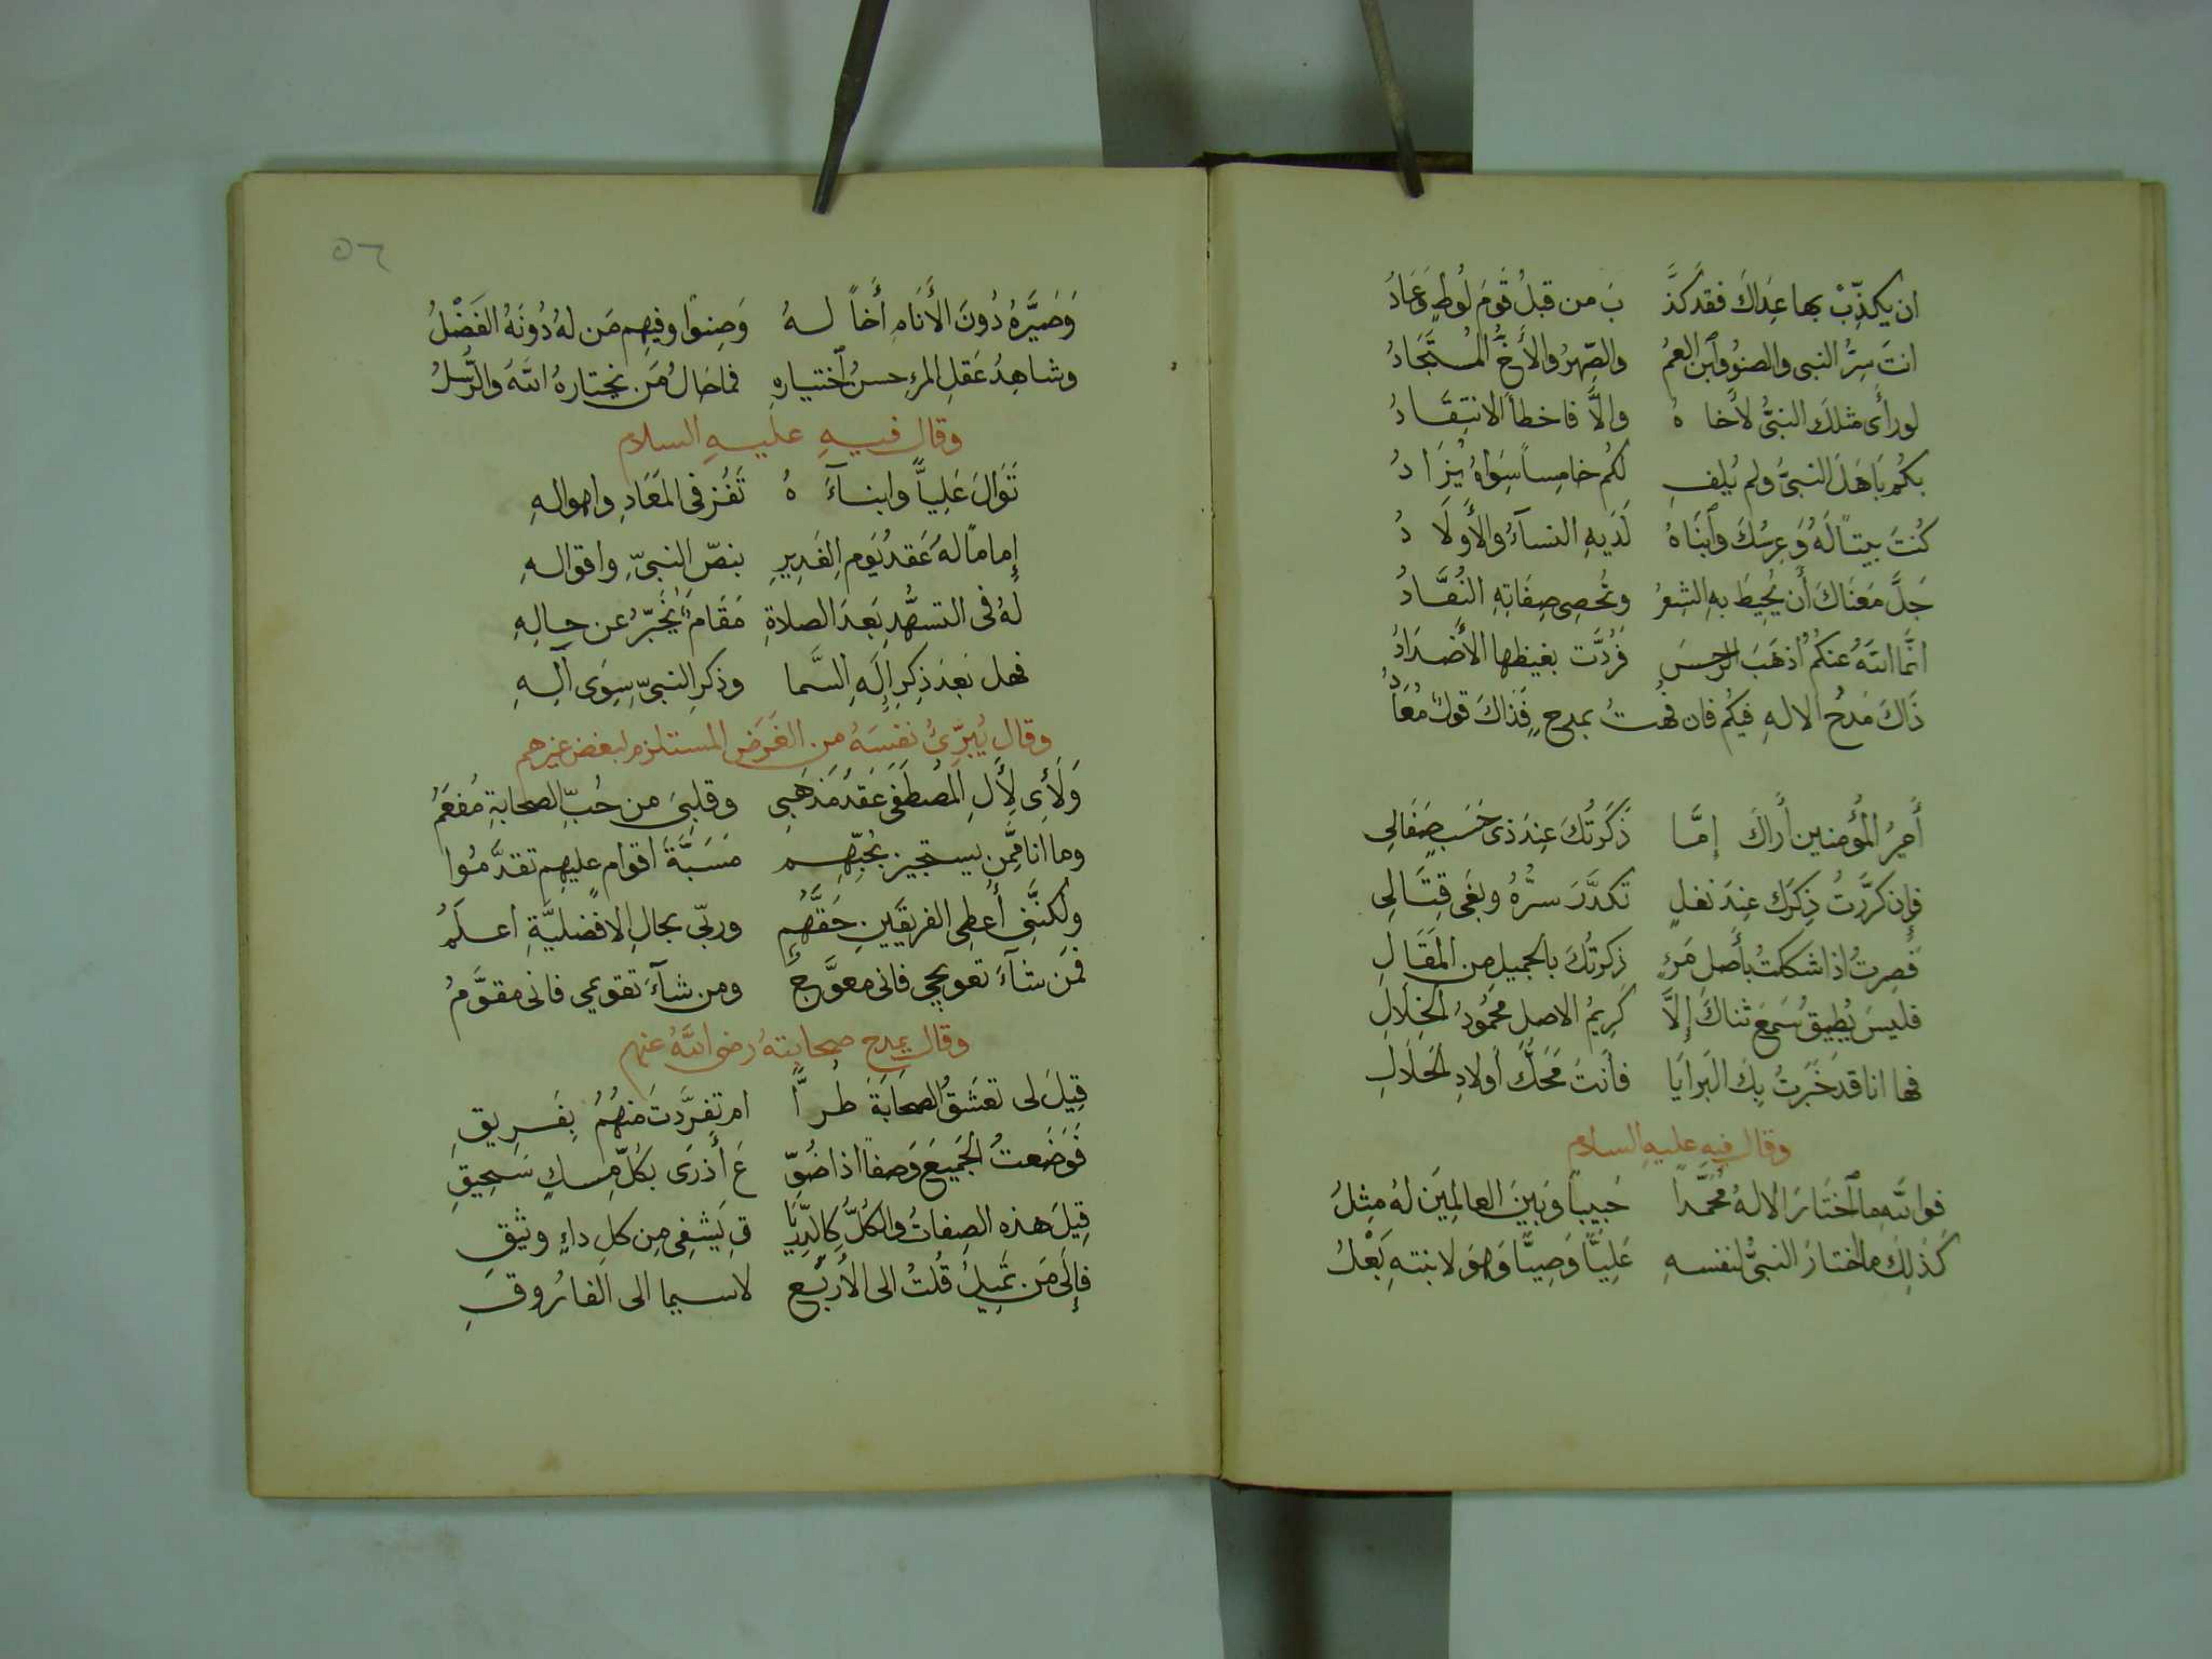 ان يكذِّبْ بها عِداكَ فقد كذَّ بَ من قبلُ قَومُ لُوطٍ وَعَادُ
انتَ سِرُّ النبى والصنوُ وٱبن العمُ والصِّهرُ والأَخُّ المُستَجَادُ
لو رأَى مثلكَ النبىُّ لأَخاهُ والاَّ فاخطأَ الانتِقَادُ
بكُم بَاهَلَ النبىُّ ولم يُلفِ لكُم خامِساً سِوَاهُ يُزَادُ
كُنتَ بيتاً لَهُ وَعِرسُكَ وٱبنَاهُ لَدَيهِ النسآءُ والأَولَادُ
جَلَّ مَعنَاكَ أَن يُحِيطَ بهِ الشِعرُ وتُحصِى صِفَاتِهِ النُقَّادُ
انَّما اللهُ عنكُمُ أذهَبَ الرجسَ فَرُدَّت بغيظها الأَضدَادُ
ذَاكَ مَدحُ الالهِ فيكُم فان فُهتُ بمدحٍ فَذاكَ قولٌ مُعَادُ
أَميرُ المُؤمنين أَراكَ إمَّا ذَكَرتُكَ عِندَ ذى حَسَبٍ صَغَالِى
فإِن كرَّرتُ ذِكرَك عِندَ نَغلٍ تَكدَّرَ سِرُّهُ وبغَى قِتَالِى
فَصِرتُ اذا شككتُ بأَصلِ مَرءٍ ذكرتُكَ بالجميلِ مِن المَقَالِ
فليسَ يُطيقُ سَمعَ ثناكَ إلاَّ كَرِيمُ الاصل محمُودُ الخِلَالِ
فها انا قد خَبَرتُ بِكَ البَرايَا فأَنتَ مَحَكُّ أَولادِ الحَلَالِ
وقال فيهِ عليهِ السلام
فوالله ما ٱختَارَ الالهُ مُحَمَّداً حَبيباً وَبَينَ العالمِينَ لهُ مِثلُ
كَذلِكَ ما اختارَ النبىُّ لنفسهِ عَلِيًّا وَصِيًّا وَهوَ لابنتهِ بَعْلُ
٥٦
وَصَيَّرَهُ دُونَ الأَنَامِ أَخاً لهُ وَصِنوًا وفيهِم مَن لهُ دُونَهُ الفَضْلُ
وشاهِدُ عَقلِ المرءِ حسنُ ٱختيارهِ فماحَالُ مَن يختارهُ اللهُ والرُّسْلُ
وقال فيهِ عليهِ السلام
تَوَالَ عَلِياًّ وابنآءَهُ تَفُز فى المَعَادِ واهوالهِ
إماماً لهُ عَقدُ يَومِ الغَدِيرِ بنصّ النبىّ واقوالهِ
لهُ فى التشهُّدِ بَعدَ الصلاةِ مَقَامٌ يُخَبّرُ عن حالهِ
فهل بَعدَ ذِكرِ إلَهِ السَّما وذكرِ النبىّ سِوَى آلهِ
وقال يُبرّئُ نفسَهُ من الغَرَضِ المستلزم لبغض غيرهم
وَلَأىِ لِأَلِ المُصطَفَى عَقدُ مَذهَبِى وقلبِىَ من حُبِّ الصحابةِ مُفعَمُ
وما انا مِمَّن يستجيز بحُبِّهِم مَسَبَّةَ اقوامٍ عليهِم تقدَّمُوا
ولكنَّنى أُعطِى الفريقَينِ حَقَّهُم وربّى بحالِ الافضليَّةِ اعلَمُ
فمَن شآءَ تعويجى فانى معوَّجٌ ومن شآءَ تقويمى فانى مقوَّمُ
وقال يمدح صحابتهُ رضى اللهُ عنهم
قِيلَ لى تعشَقُ الصحَابَةَ طُراًّ ام تفرَّدتَ منهُمُ بفَرِيقِ
فَوَصَفتُ الجَميعَ وَصفاً اذا ضُوِّ عَ أَزرَى بكُلّ مِسكٍ سَحيقِ
قِيلَ هذه الصِفاتُ والكُلُّ كالدِّريَا قِ يَشفِى مِن كلِ داءٍ وثيقِ
فإلَى مَن تَميلُ قُلتُ الى الأَربَعِ لاسيما الى الفارُوقِ